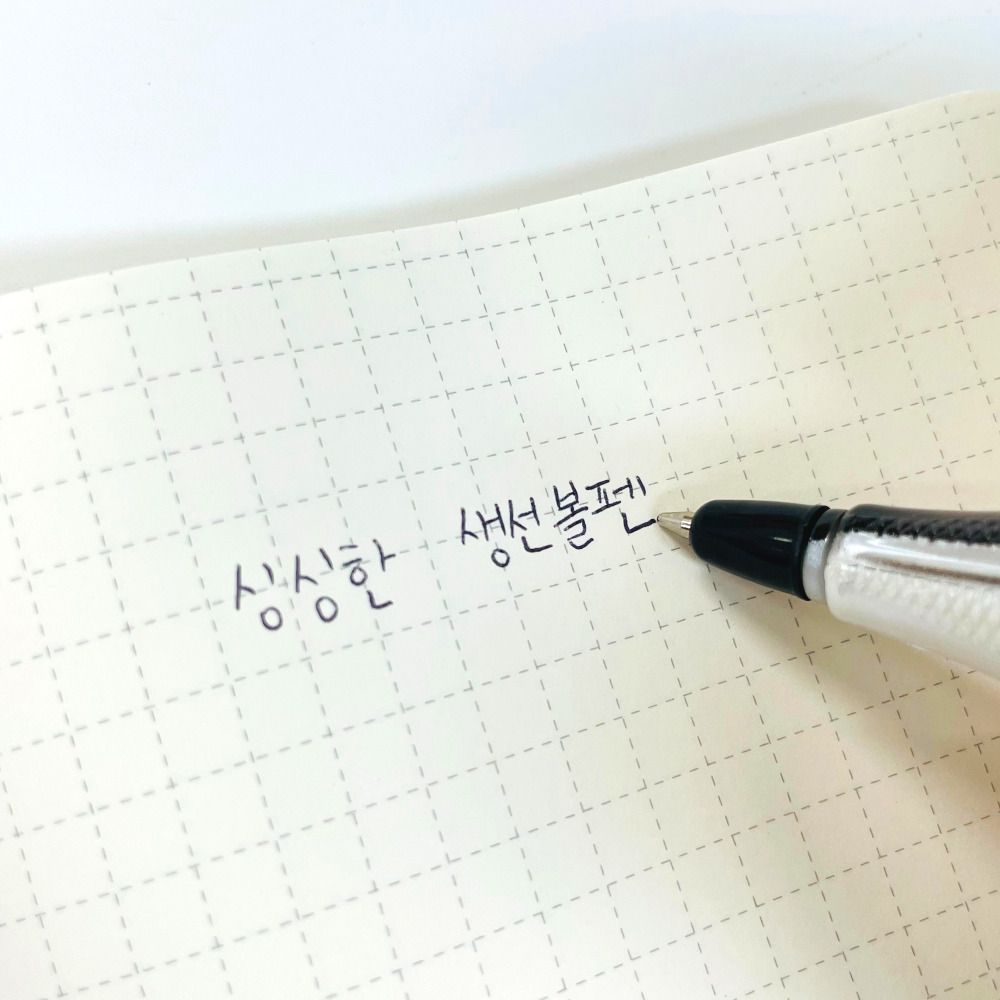 싱싱한 생선볼펜